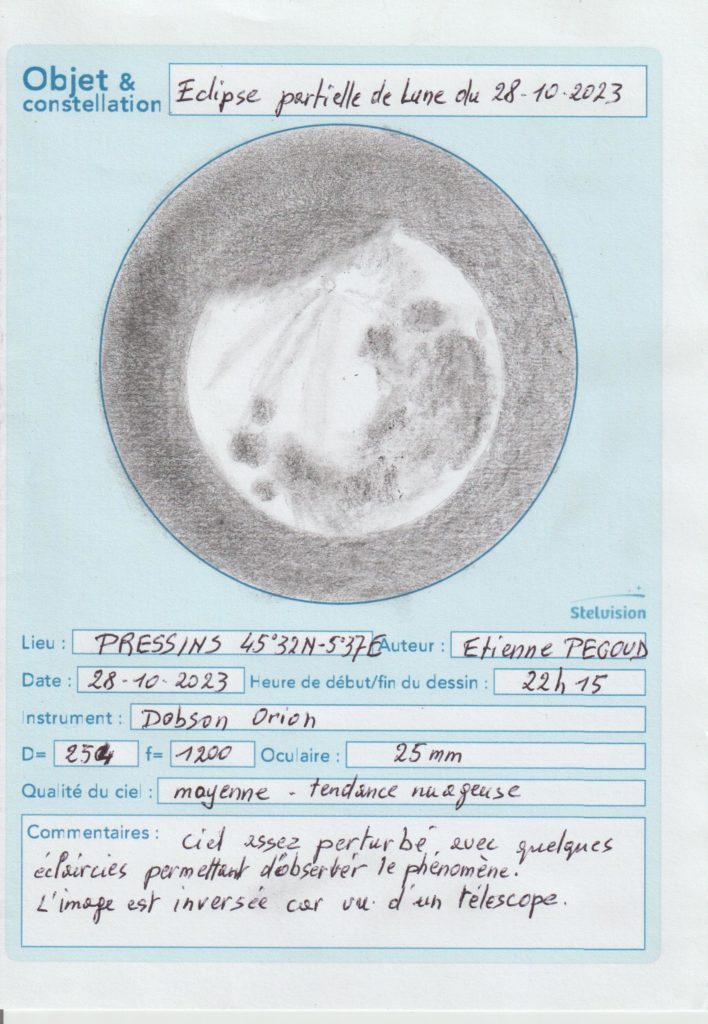 Objet &
constellation
Eclipse partielle de Lune du 28-10-2023
Stelvision
Lieu : PRESSINS 45°32N-5°37E Auteur : Etienne PEGOUD
Date : 28-10-2023 Heure de début/fin du dessin : 22h15
Instrument : Dobson Orion
D= 254 f= 1200 Oculaire : 25mm
Qualité du ciel : moyenne - tendance nuageuse
Commentaires : Ciel assez perturbé, avec quelques
éclaircies permettant d'observer le phénomène.
L'image est inversée car vu d'un télescope.